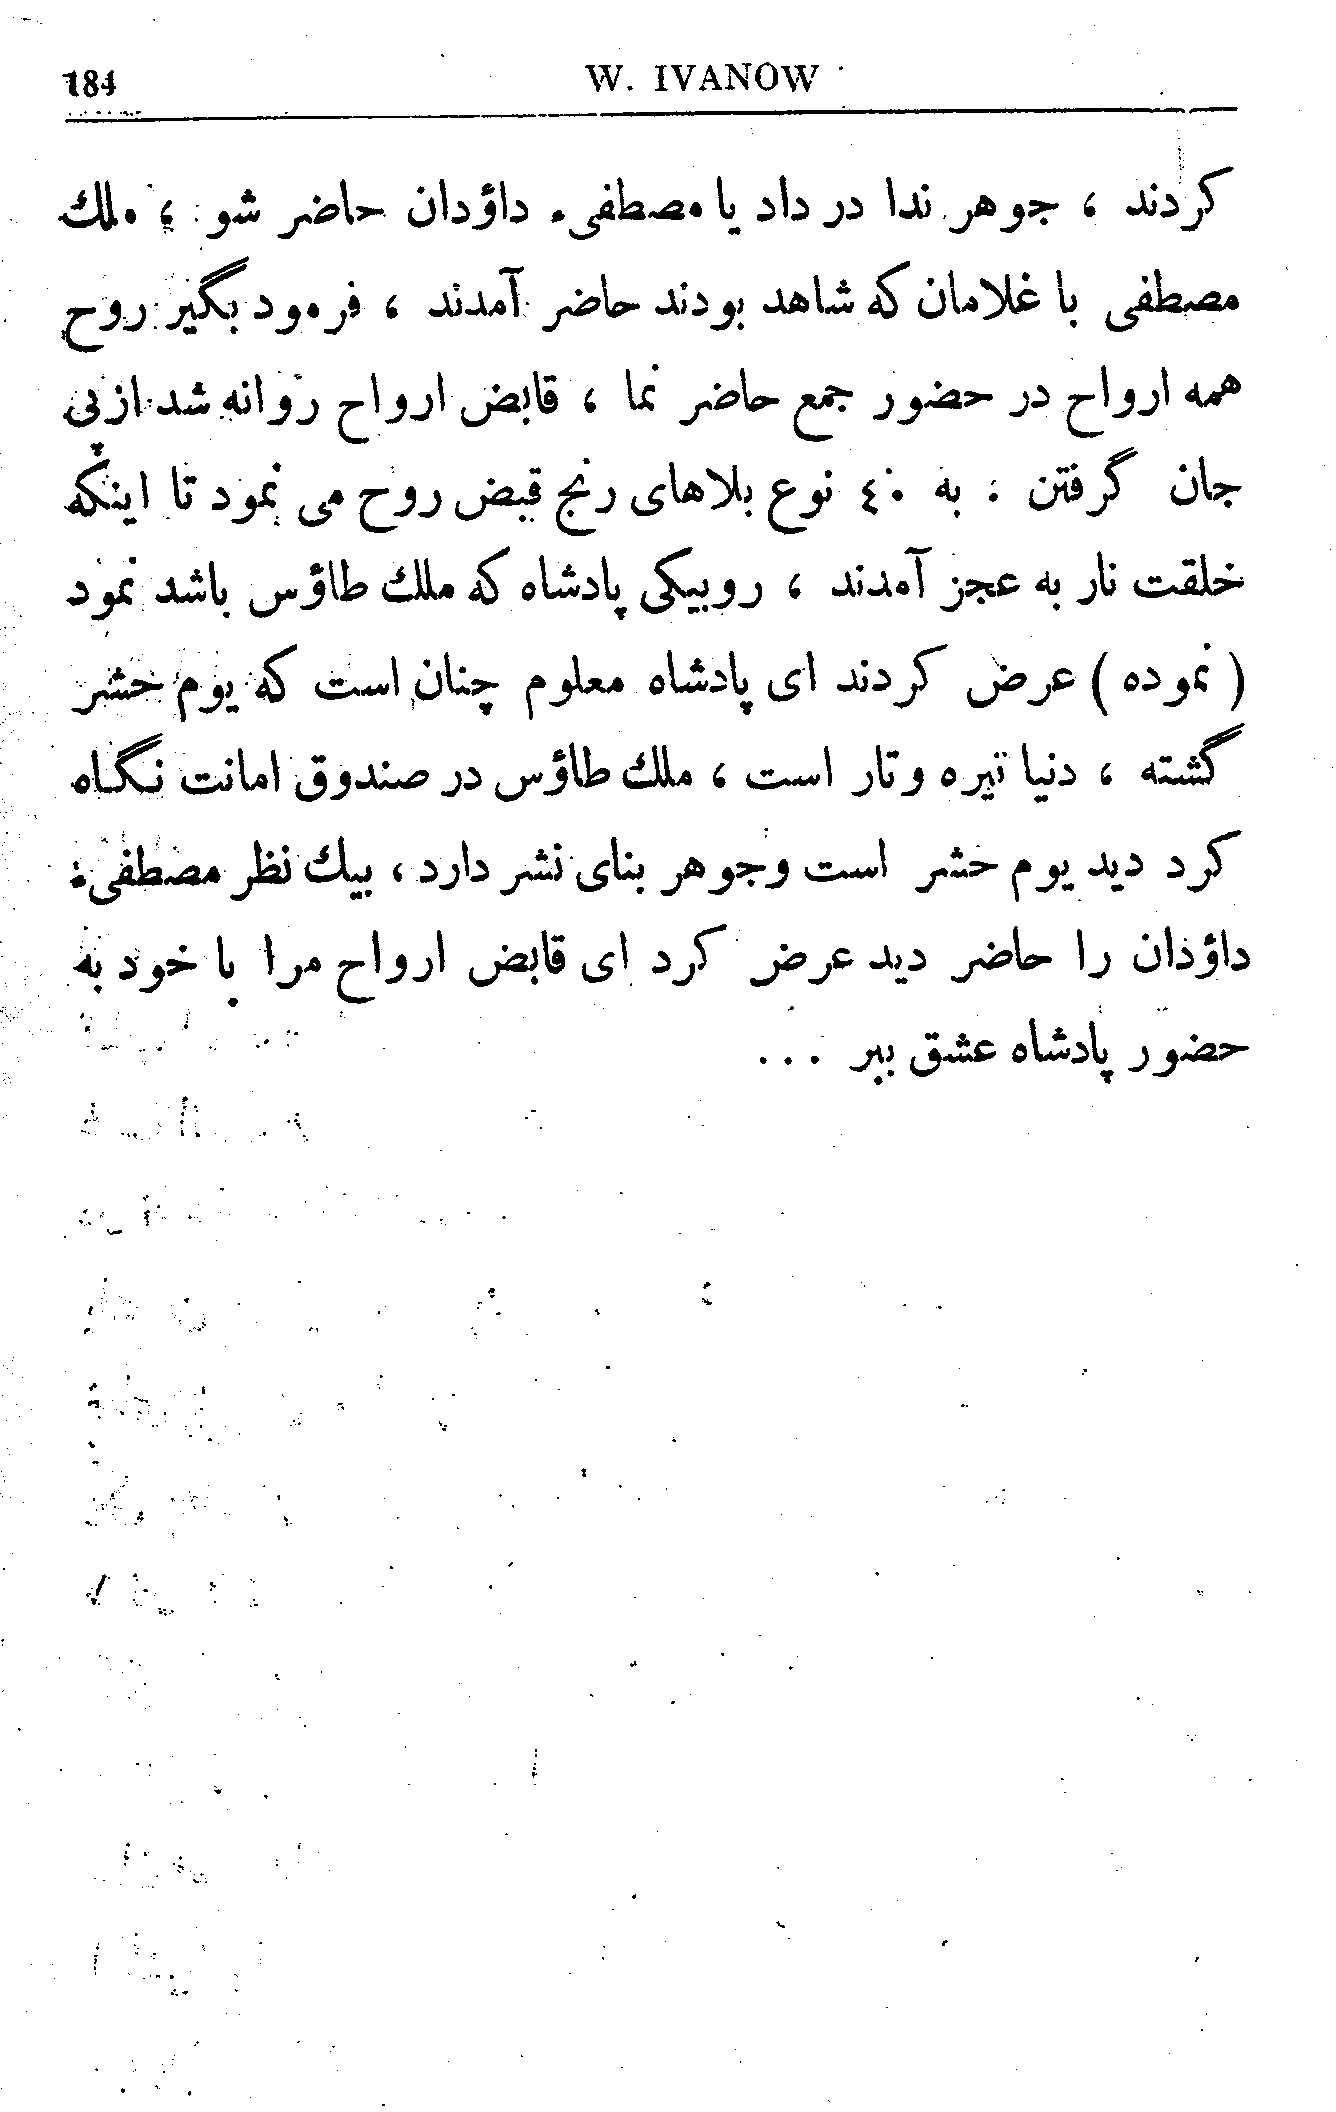 184 W. IVANOW
كردند ، جوهر ندا در داد يا مصطفىء داؤدان حاضر شو ، ملك
مصطفى با غلامان كه شاهد بودند حاضر آمدند ، فرمود بگير روح
همه ارواح در حضور جمع حاضر نما ، قابض ارواح روانه شد از پى
جان گرفتن : به ٤٠ نوع بلاهاى رنج قبض روح مى نمود تا اينكه
خلقت نار به عجز آمدند ، روبيكى پادشاه كه ملك طاؤس باشد نمود
( نموده ) عرض كردند اى پادشاه معلوم چنان است كه يوم حشر
گشته ، دنيا تيره وتار است ، ملك طاؤس در صندوق امانت نگاه
كرد ديد يوم حشر است وجوهر بناى نشر دارد ، بيك نظر مصطفىء
داؤدان را حاضر ديد عرض كرد اى قابض ارواح مرا با خود به
حضور پادشاه عشق ببر ...